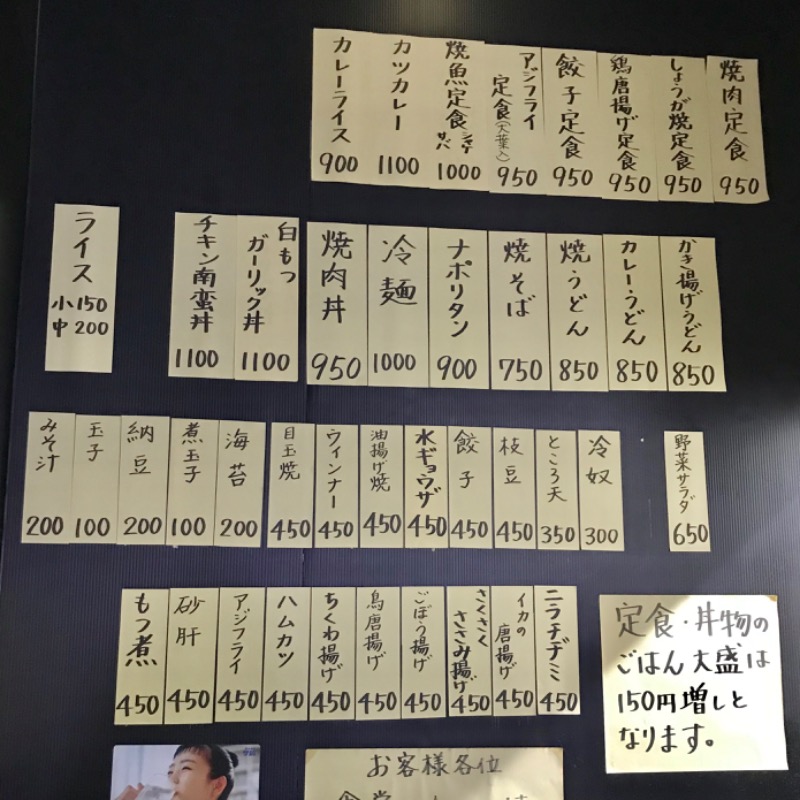 焼肉定食
950
しょうが焼定食
950
鶏唐揚げ定食
950
餃子定食
950
アジフライ
定食(大葉入)
950
焼魚定食 シャケ
サバ
1000
カツカレー
1100
カレーライス
900
かき揚げうどん
850
カレーうどん
850
焼うどん
850
焼そば
750
ナポリタン
900
冷麺
1000
焼肉丼
950
白もつ
ガーリック丼
1100
チキン南蛮丼
1100
ライス
小150
中200
野菜サラダ
650
冷奴
300
ところ天
350
枝豆
450
餃子
450
水ギョウザ
450
油揚げ焼
450
ウィンナー
450
目玉焼
450
海苔
200
煮玉子
100
納豆
200
玉子
100
みそ汁
200
ニラチヂミ
450
イカの
唐揚げ
450
さくさく
ささみ揚げ
450
ごぼう揚げ
450
鳥唐揚げ
450
ちくわ揚げ
450
ハムカツ
450
アジフライ
450
砂肝
450
もつ煮
450
定食・丼物の
ごはん大盛は
150円増しと
なります。
お客様各位